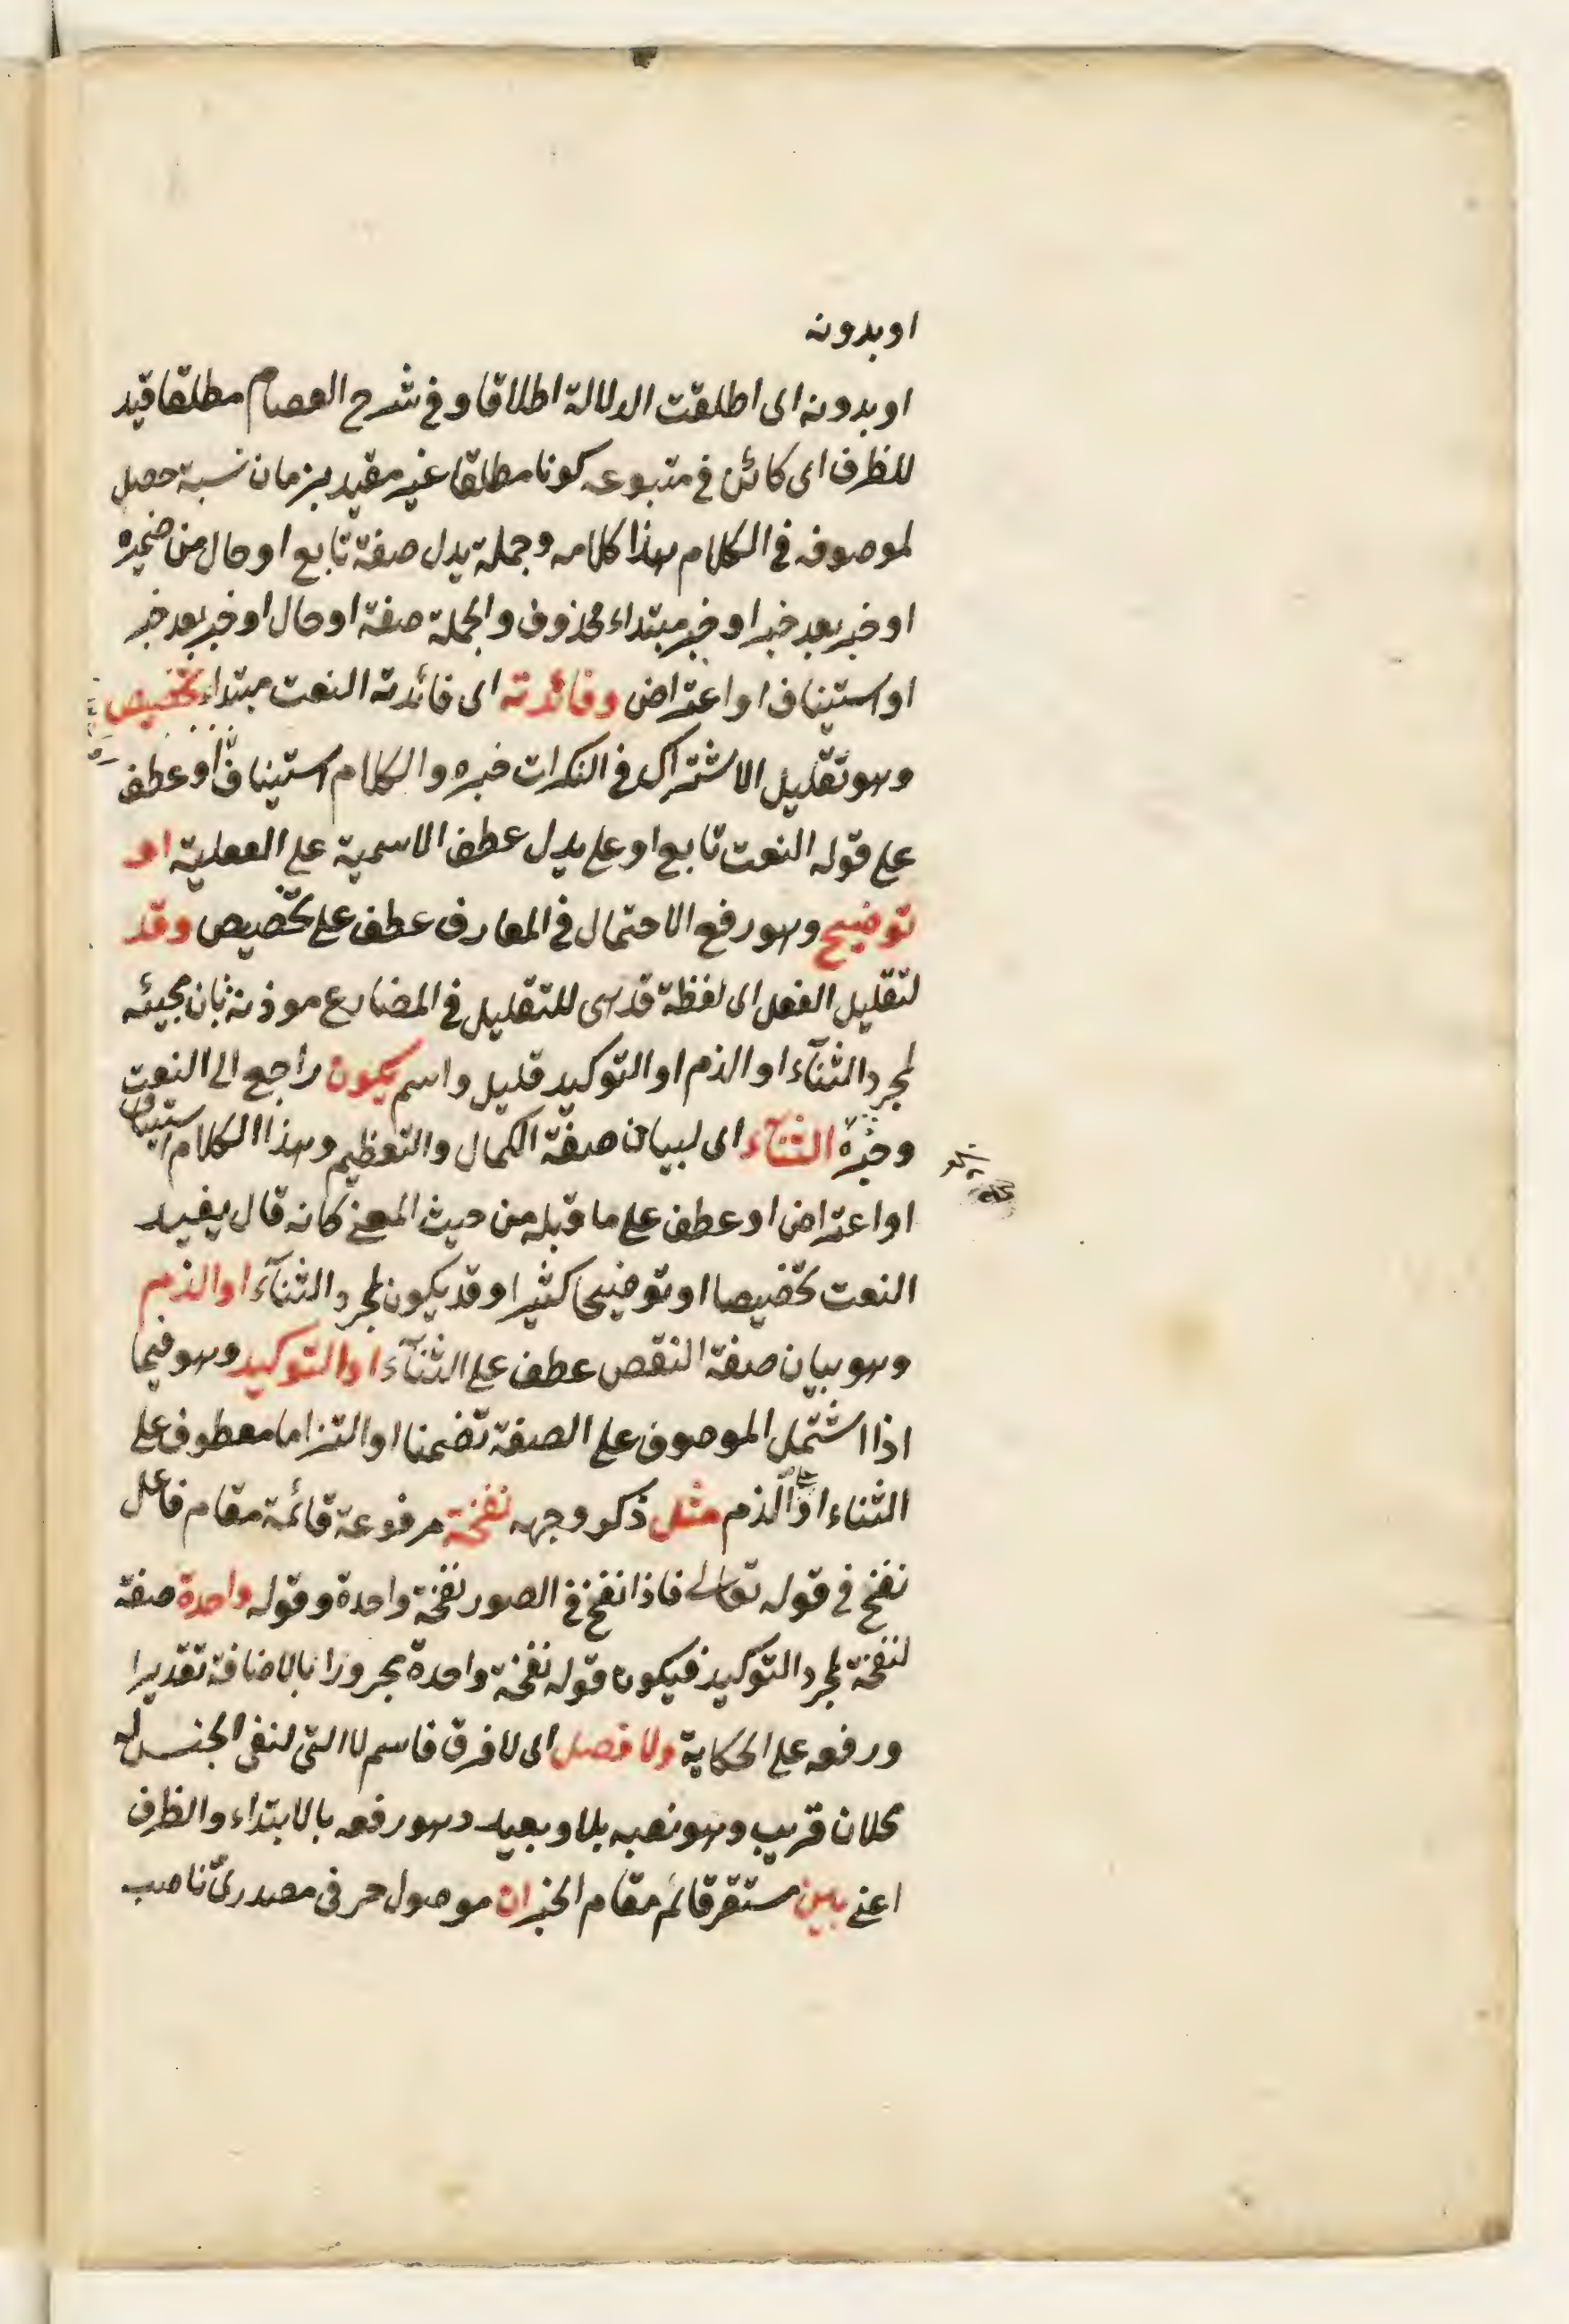 او بدونه
او بدونه اى اطلقت الدلالة اطلاقا وفى شرح العصام مطلقا قيد
للظرف اى كائن فى متبوعه كونا مطلقا غير مقيد بزمان نسبة حصل
لموصوفه فى الكلام هذا كلامه وجملة يدل صفة تابع او حال من ضميره
او خبر بعد خبر او خبر مبتداء محذوف والجملة صفة او حال او خبر بعد خبر
او استيناف او اعتراض وفائدته اى فائدته النعت مبتداء تخصيص
وهو تقليل الاشتراك فى النكرات خبره والكلام استيناف او عطف
على قوله النعت تابع او على يدل عطف الاسمية على الفعلية او
توضيح وهو رفع الاحتمال فى المعارف عطف على تخصيص وقد
لتقليل الفعل اى لفظة قد هى للتقليل فى المضارع موذنة بان مجيئه
لمجرد الثنآء او الذم او التوكيد قليل واسم يكون راجع الى النعت
وخبره الثنآء اى لبيان صفة الكمال والتعظيم وهذا الكلام استيناف
او اعتراض او عطف على ما قبله من حيث المعنى كانه قال يفيد
النعت تخصيصا او توضيحا كثيرا وقد يكون لمجرد الثنآء او الذم
وهو بيان صفة النقص عطف على الثنآء او التوكيد وهو فيما
اذا اشتمل الموصوف على الصفة تضمنا او التزاما معطوف على
الثناء او على الذم مثل ذكر وجهه نفخة مرفوعة قائمة مقام فاعل
نفخ فى قوله تعالى فاذا نفخ فى الصور نفخة واحدة وقوله واحدة صفة
لنفخة لمجرد التوكيد فيكون قوله نفخة واحدة مجرورا بالاضافة تقديرا
ورفعه على الحكاية ولا فصل اى لا فرق فاسم لا التى لنفى الجنس له
محلان قريب وهو نصبه بلا وبعيد وهو رفعه بالابتداء والظرف
اعنى بين مستقر قائم مقام الخبر ان موصول حرفى مصدرى ناصب